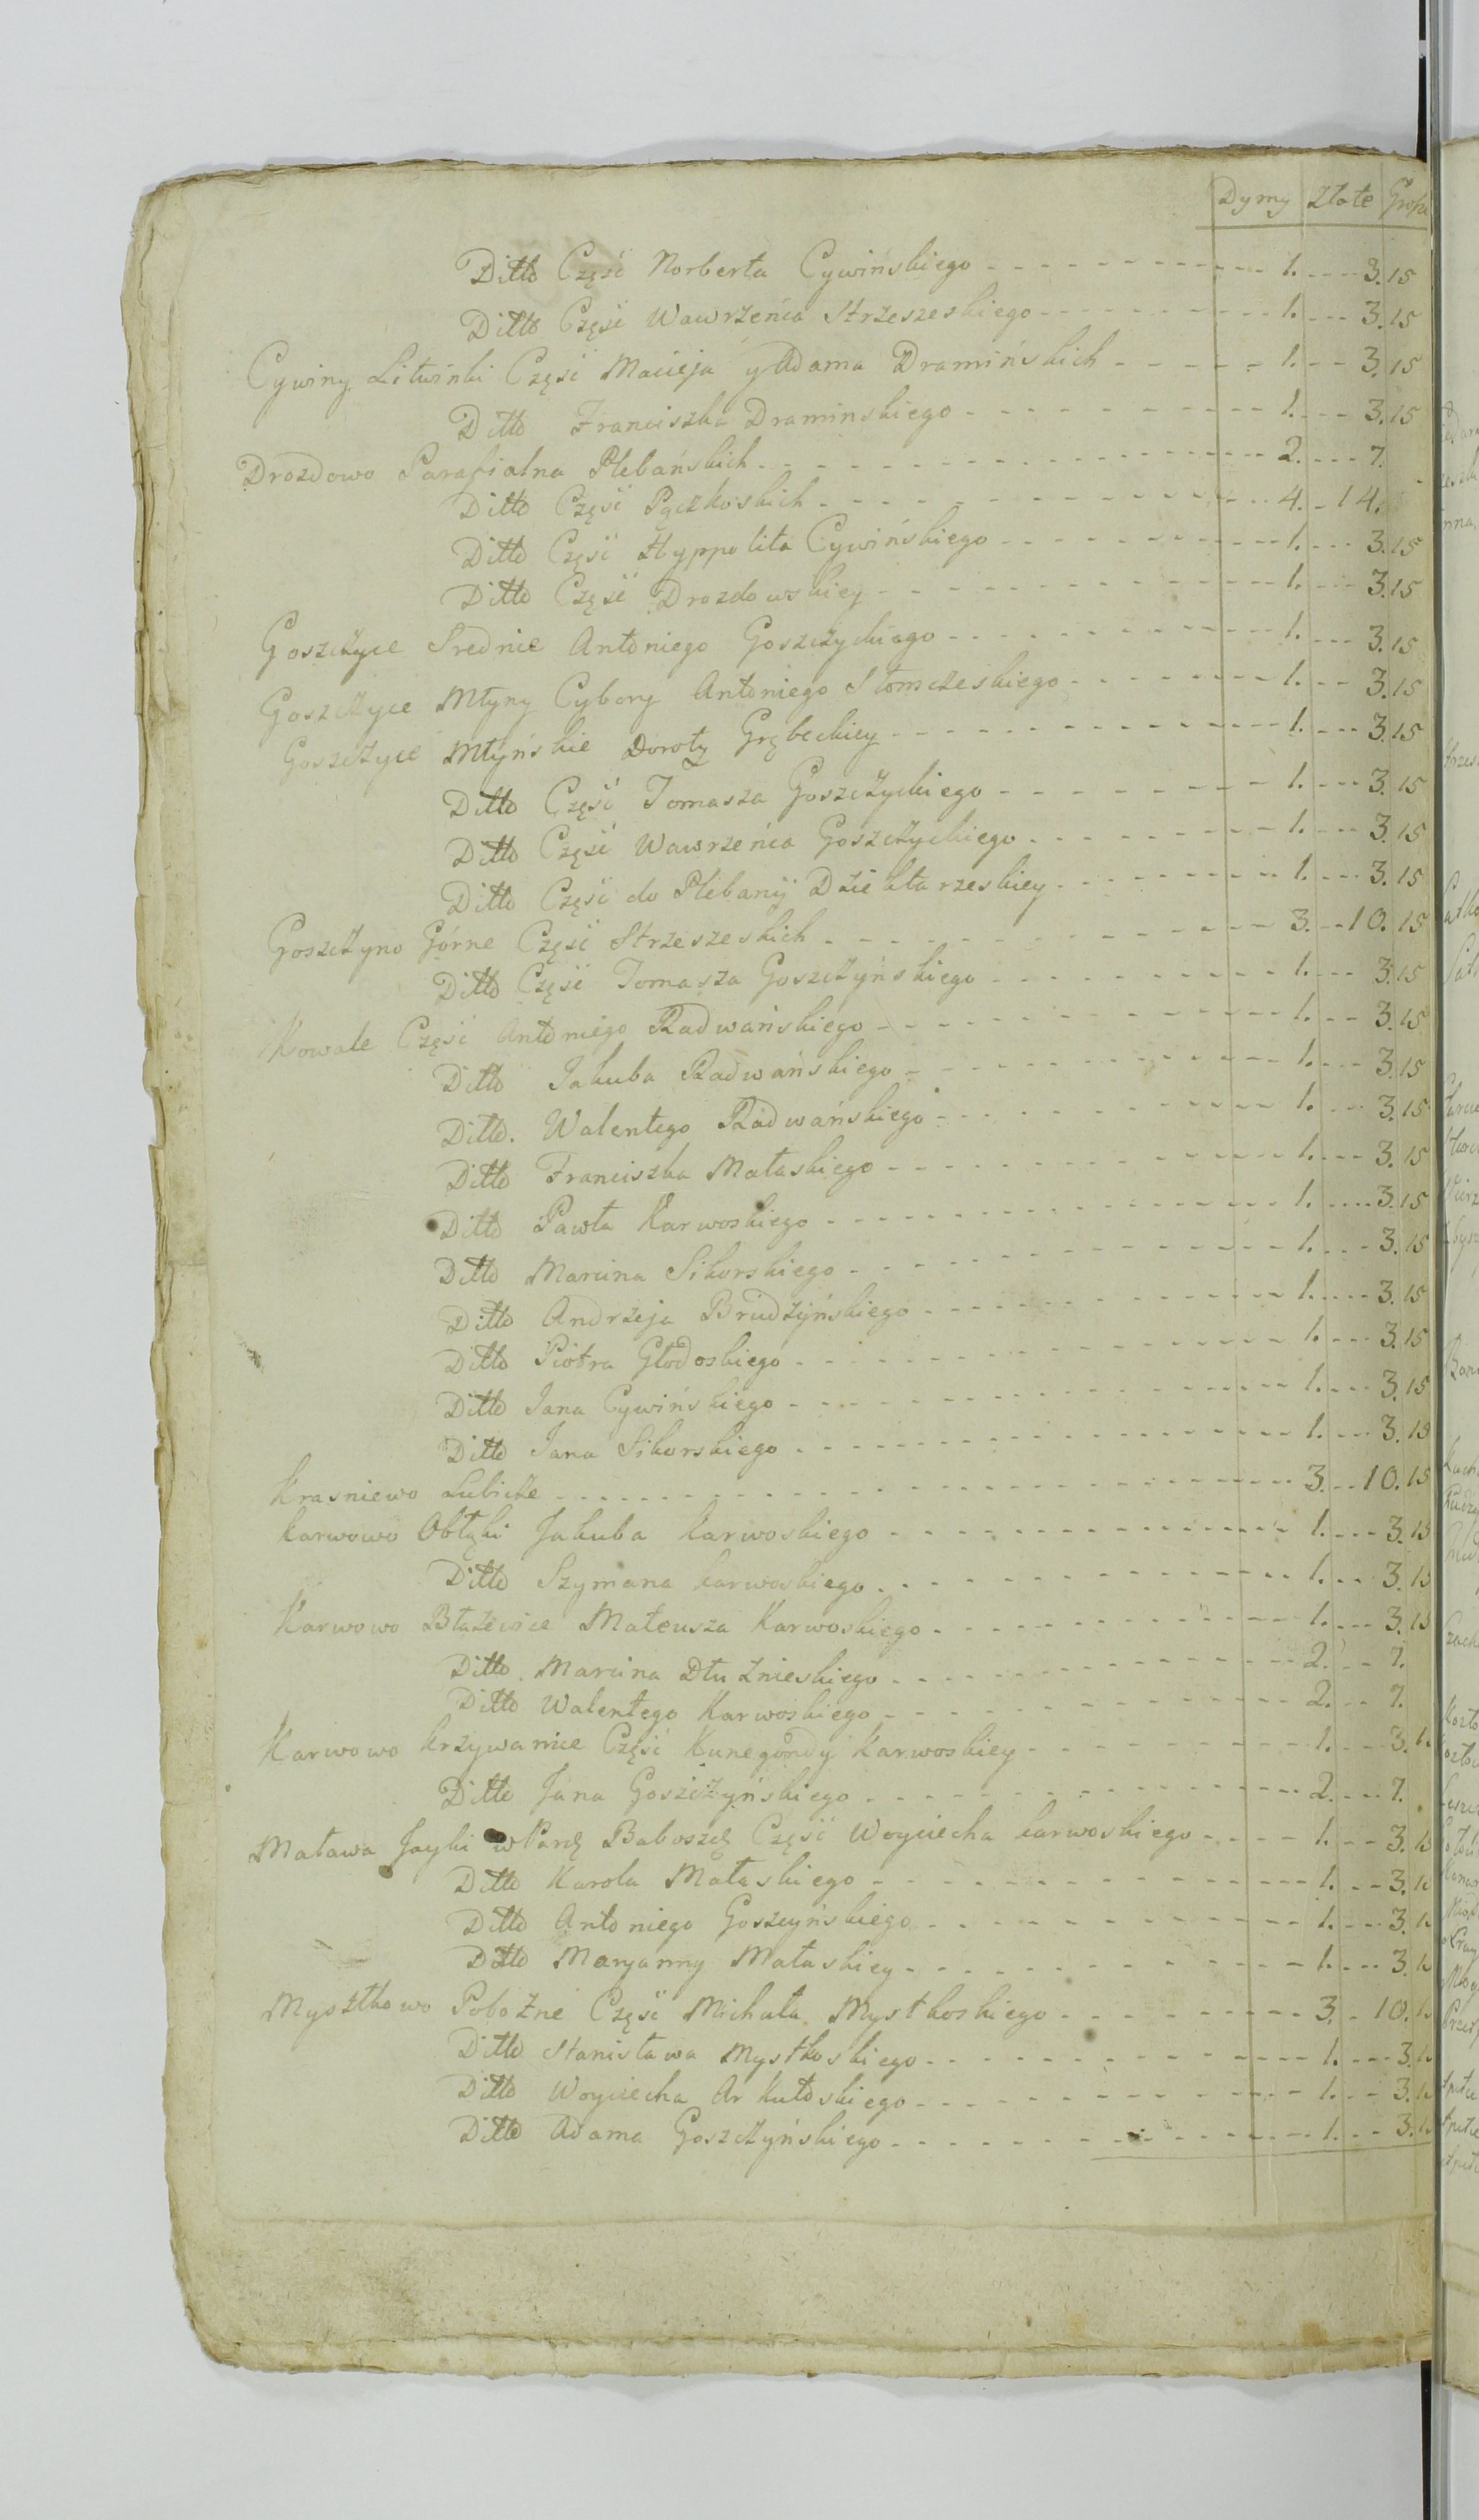 Dymy Złote Grosze
Ditto Częsć Norberta Cywińskiego 1. 3. 15
Ditto Częsć Wawrzeńca Strzeszeskiego 1. 3. 15
Cywiny Litwinki Częsć Macieja y Adama Dramińskich 1. 3. 15
Ditto Franciszka Draminskiego 1. 3. 15
Drozdowo Parafialna Plebańskich 2. 7.
Ditto Częsć Pączkoskich 4. 14.
Ditto Częsć Hyppolita Cywińskiego 1. 3. 15
Ditto Częsć Drozdowskiey 1. 3. 15
Goszczyce Srednie Antoniego Goszczyckiego 1. 3. 15
Goszczyce Młyny Cybory Antoniego Słomczeskiego 1. 3. 15
Goszczyce Młyńskie Doroty Grębeckiey 1. 3. 15
Ditto Częsć Tomasza Goszczyckiego 1. 3. 15
Ditto Częsć Wawrzeńca Goszczyckiego 1. 3. 15
Ditto Częsć do Plebanij Dziektarzeskiey 1. 3. 15
Goszczyno Górne Częsć Strzeszeskich 3. 10. 15
Ditto Częsć Tomasza Goszczyńskiego 1. 3. 15
Kowale Częsć Antoniego Radwańskiego 1. 3. 15
Ditto Jakuba Radwańskiego 1. 3. 15
Ditto. Walentego Radwańskiego 1. 3. 15
Ditto Franciszka Małaskiego 1. 3. 15
Ditto Pawła Karwoskiego 1. 3. 15
Ditto Marcina Sikorskiego 1. 3. 15
Ditto Andrzeja Brudzyńskiego 1. 3. 15
Ditto Piotra Głodoskiego 1. 3. 15
Ditto Jana Cywińskiego 1. 3. 15
Ditto Jana Sikorskiego 1. 3. 15
Krasniewo Lubicze 3. 10. 15
Karwowo Obłąki Jakuba Karwoskiego 1. 3. 15
Ditto Szymana karwoskiego 1. 3. 15
Karwowo Błażewice Mateusza Karwoskiego 1. 3. 15
Ditto Marcina Dłużnieskiego 2. 7.
Ditto Walentego Karwoskiego 2. 7.
Karwowo krzywanice Częsć Kunegondy Karwoskiey 1. 3.
Ditto Jana Goszczyńskiego 2. 7.
Maława Jayki Baboszę Częsć Woyciecha karwoskiego 1. 3. 15
Ditto Karola Małaskiego 1. 3.
Ditto Antoniego Goszcyńskiego 1. 3.
Ditto Maryanny Małaskiey 1. 3.
Mysztkowo Pobożne Częsć Michała Mystkoskiego 3. 10.
Ditto Stanisława Mystkoskiego 1. 3.
Ditto Woyciecha Arkutoskiego 1. 3.
Ditto Adama Goszczyńskiego 1. 3.